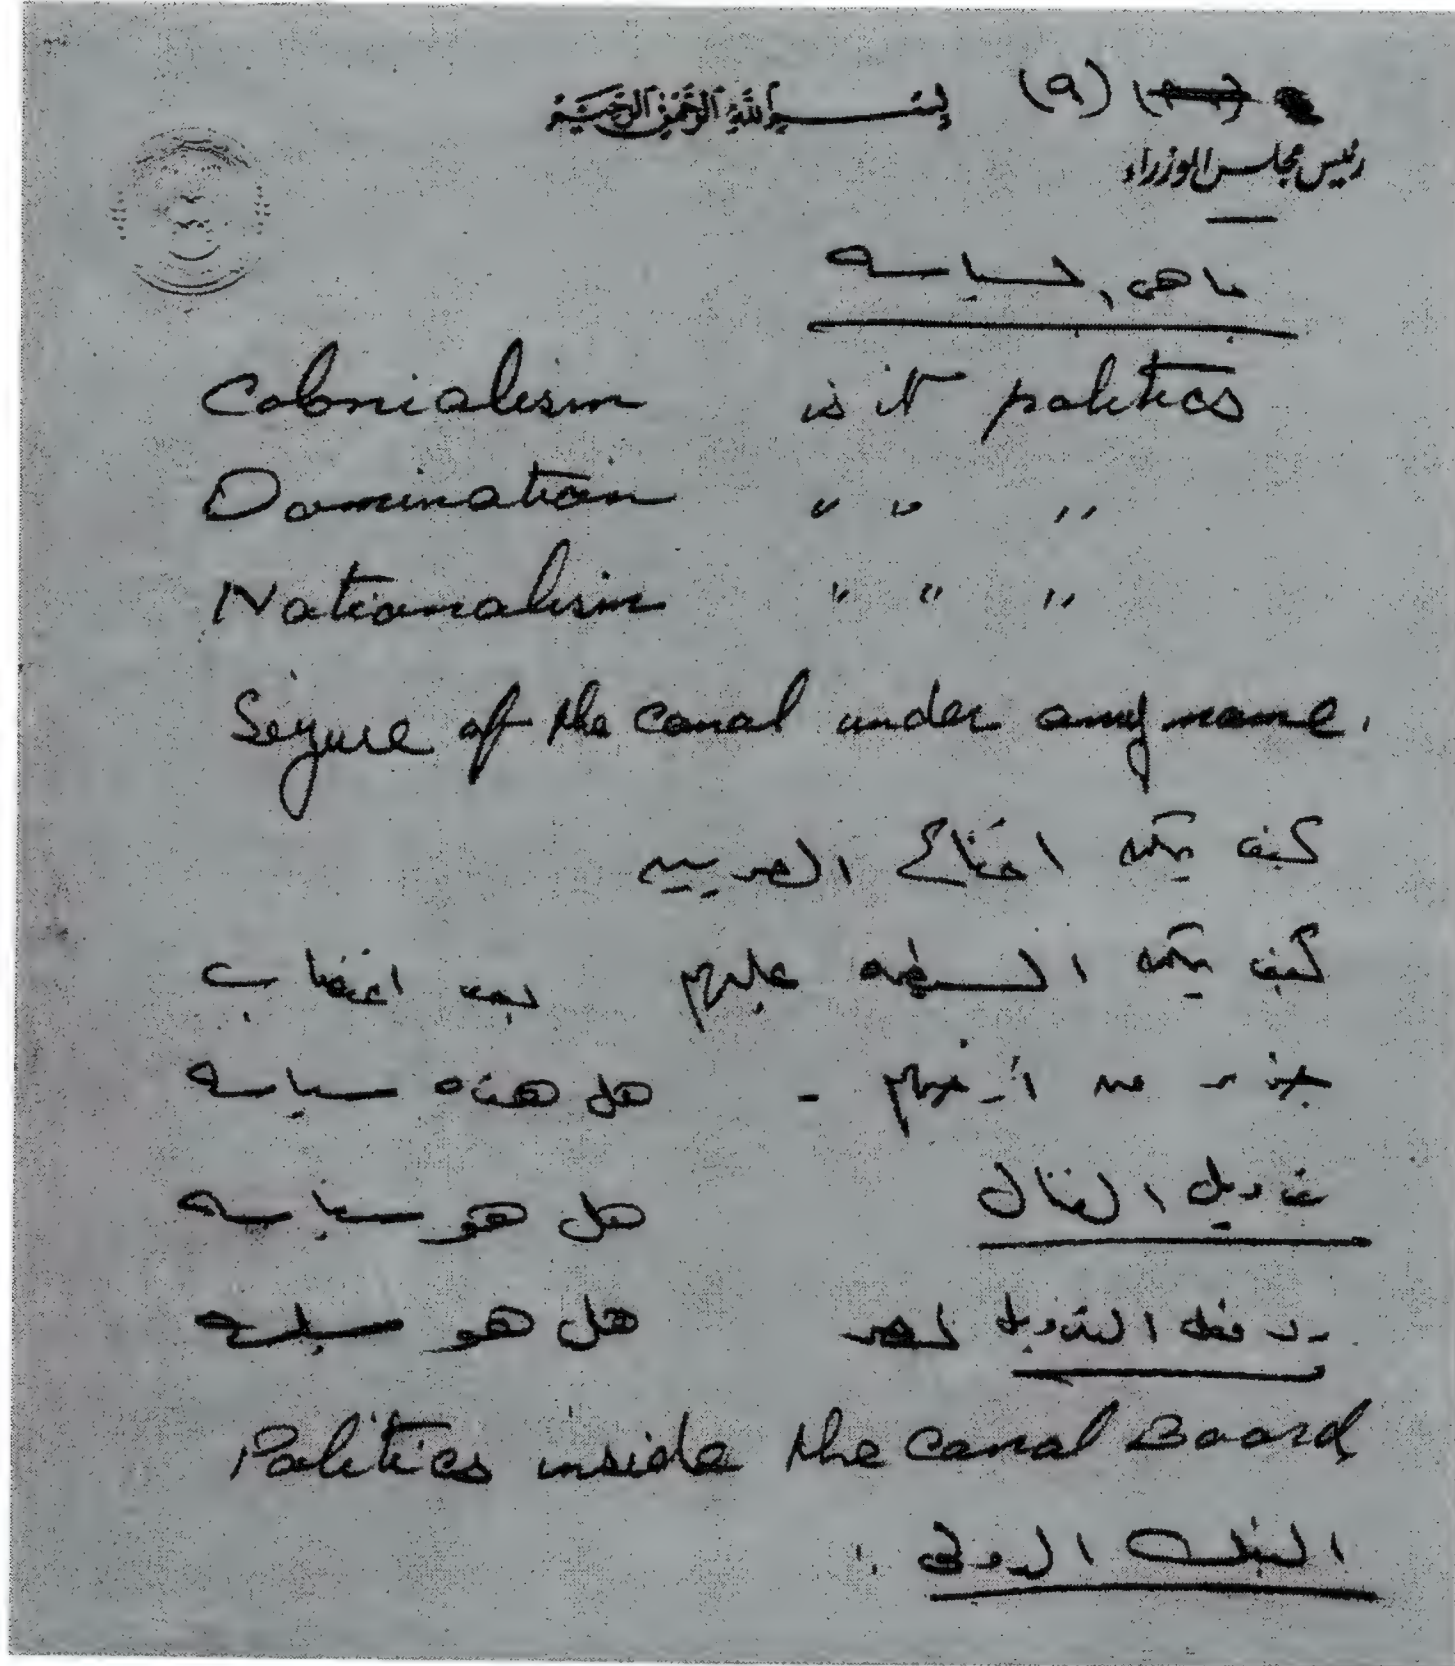 بسم الله الرحمن الرحيم (٩)
رئيس مجلس الوزراء
ما هى السياسه
Colonialism is it politics
Domination " " "
Nationalism " " "
Seizure of the canal under any name.
كيف يمكن اقناع المصريين
كيف يمكن السيطره عليهم بعد اغتصاب
جزء من أرضهم - هل هذه سياسه
تمويل القنال هل هو سياسه
رفض التمويل لمصر هل هو سياسه
Politics inside the Canal Board
البنك الدولى .